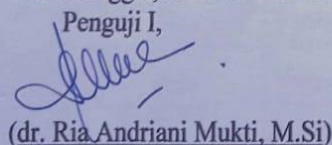 Penguji I,
(dr. Ria Andriani Mukti, M.Si)